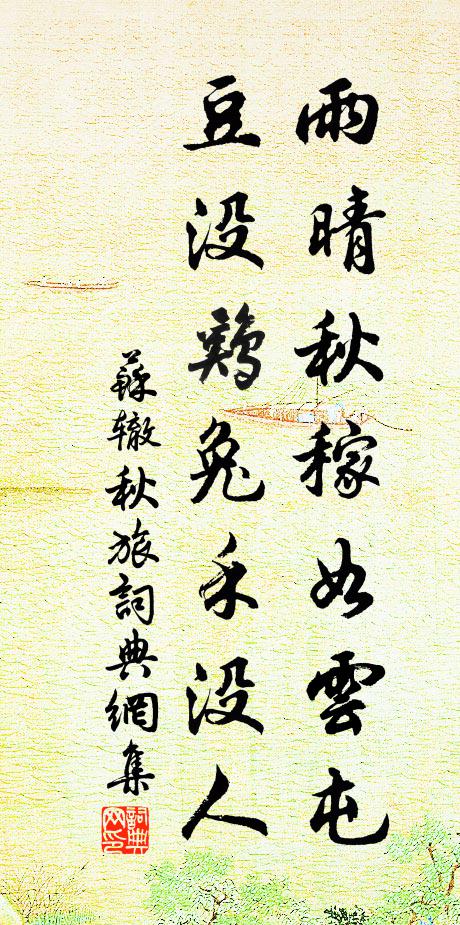 雨晴秋稼如雲屯
豆没鷄兔禾没人
蘇辙秋旅詞典網集
詞典
网印